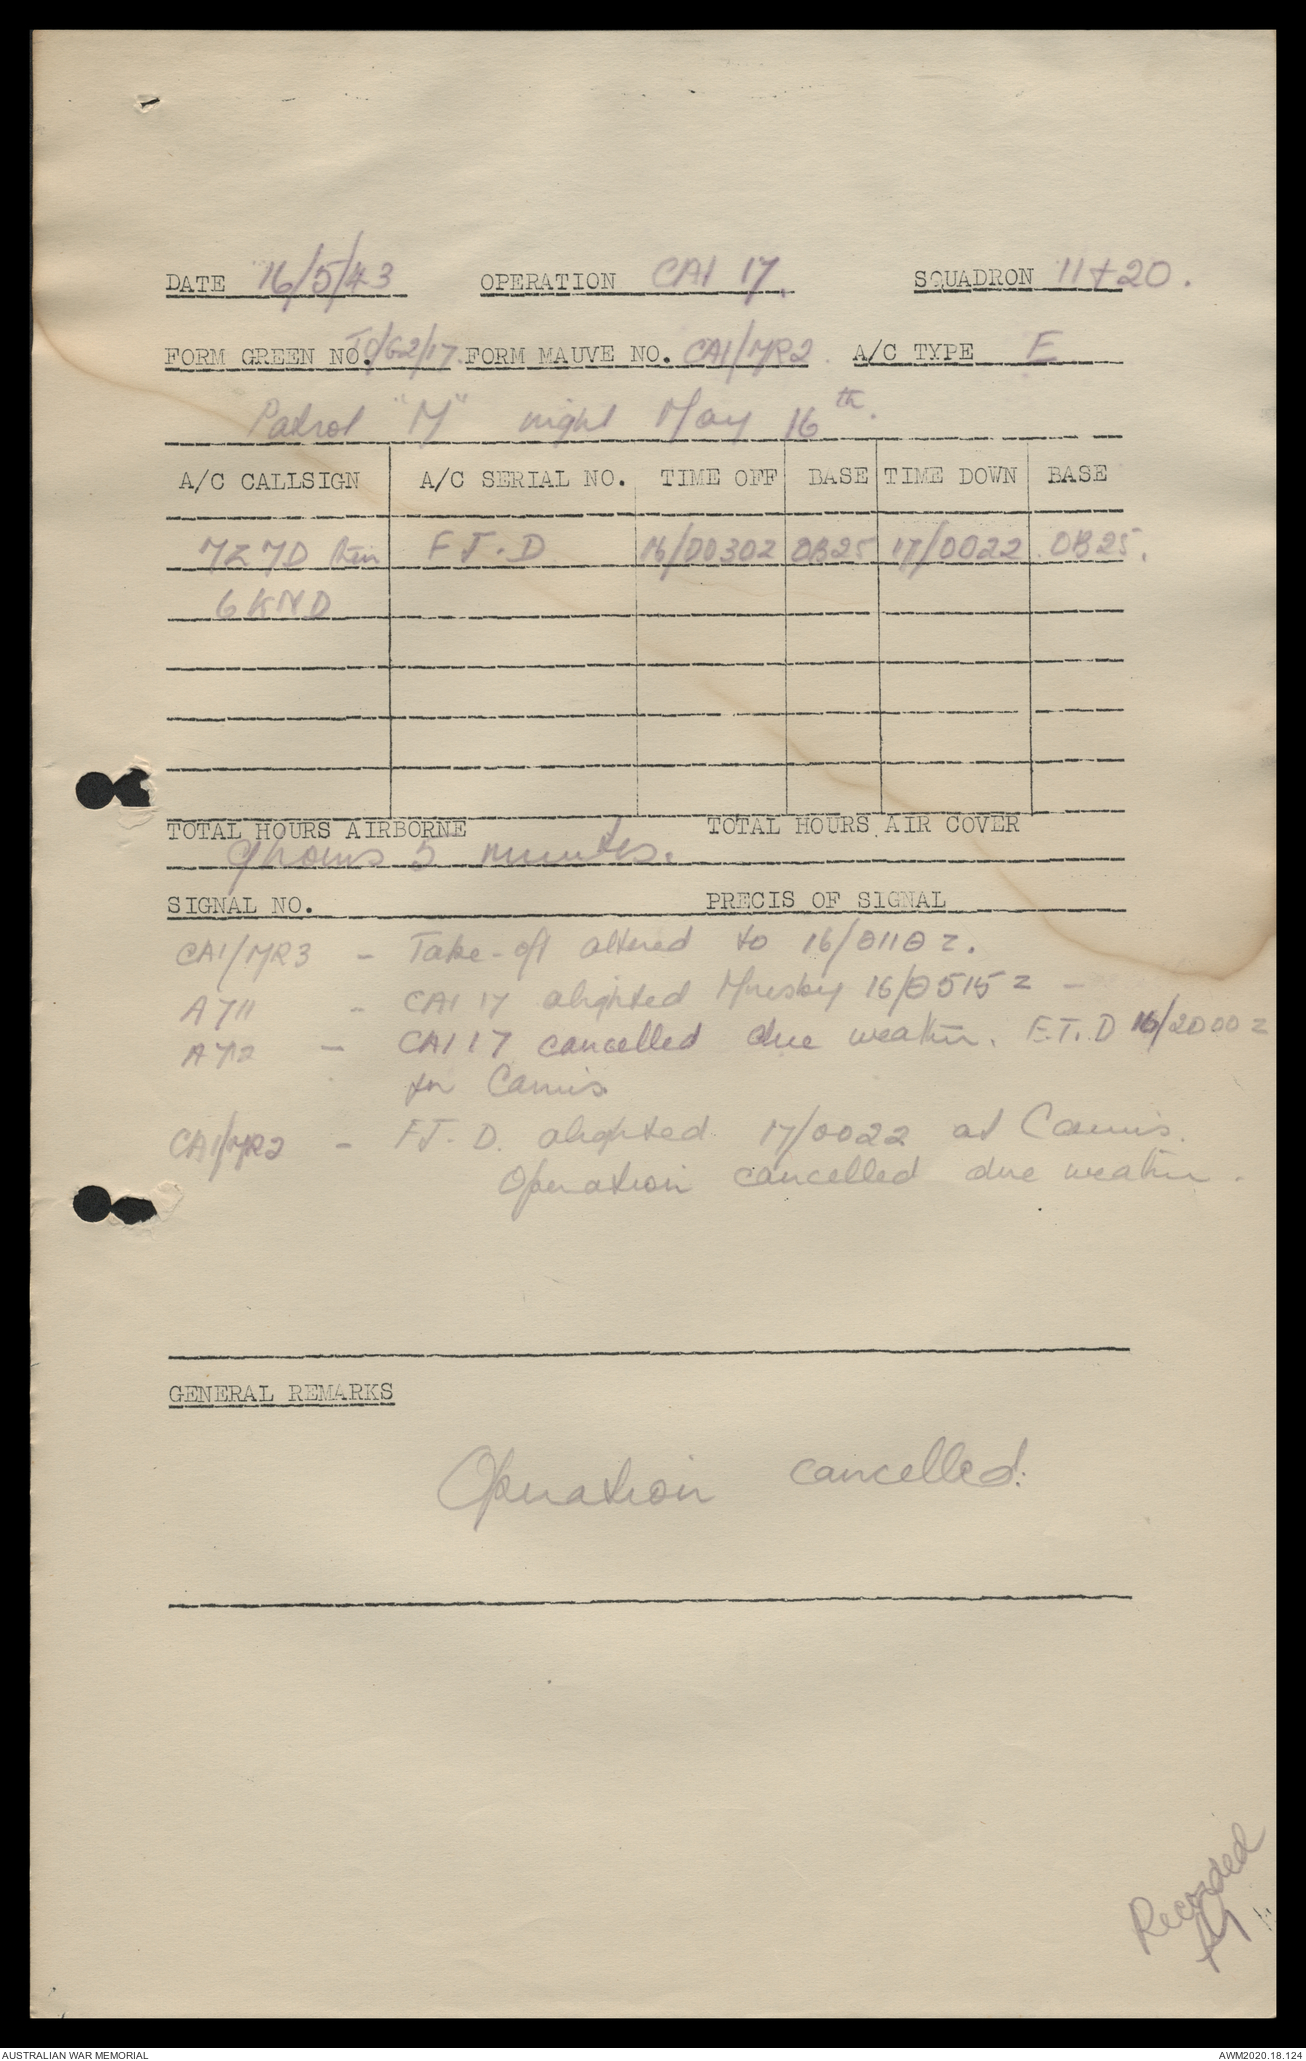 DATE 16/5/43 OPERATION CAI 17. SQUADRON 11+20.
FORM GREEN NO. /G2/17. FORM MAUVE NO. CAI/MR2. A/C TYPE E
Patrol "M" night May 16th.
A/C CALLSIGN A/C SERIAL NO. TIME OFF BASE TIME DOWN BASE
7Z7D FJ.D 16/0030Z OB25 17/0022 OB25.
6KND
TOTAL HOURS AIRBORNE TOTAL HOURS AIR COVER
9 hours 5 minutes.
SIGNAL NO. PRECIS OF SIGNAL
CAI/MR3 - Take-off altered to 16/0110Z.
A711 - CAI 17 alighted Moresby 16/0515Z -
A712 - CAI 17 cancelled due weather. E.T.D 16/2000Z
for Cairns
CAI/MR2 - FJ.D. alighted 17/0022 at Cairns.
Operation cancelled due weather.
GENERAL REMARKS
Operation cancelled.
Recorded
AUSTRALIAN WAR MEMORIAL AWM2020.18.124